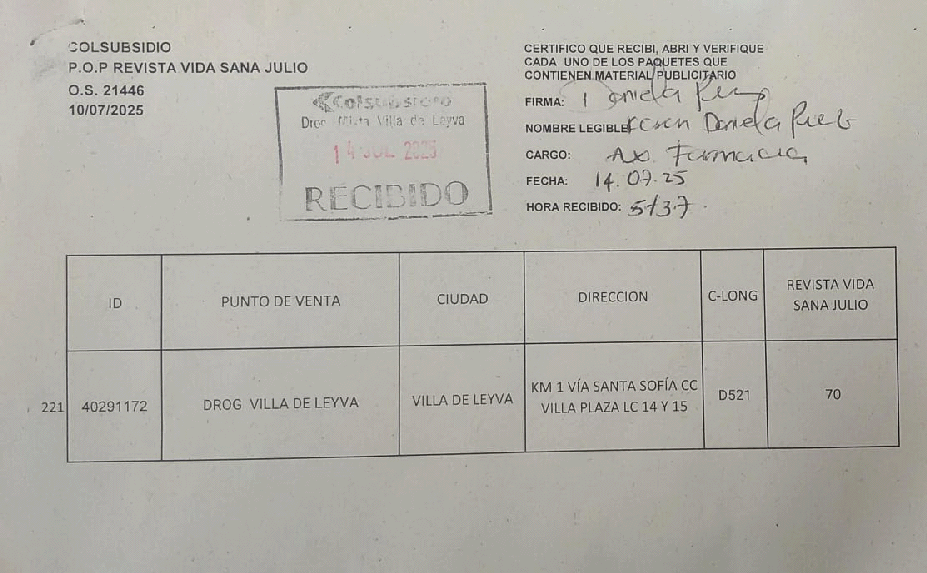 COLSUBSIDIO
P.O.P REVISTA VIDA SANA JULIO
O.S. 21446
10/07/2025
Colsubsidio
Drog Mixta Villa de Leyva
14 JUL 2025
RECIBIDO
CERTIFICO QUE RECIBI, ABRI Y VERIFIQUE
CADA UNO DE LOS PAQUETES QUE
CONTIENEN MATERIAL PUBLICITARIO
FIRMA: Daniela
NOMBRE LEGIBLE: Karen Daniela
CARGO: Aux Farmacia
FECHA: 14.07.25
HORA RECIBIDO:
ID PUNTO DE VENTA CIUDAD DIRECCION C-LONG REVISTA VIDA
SANA JULIO
221 40291172 DROG VILLA DE LEYVA VILLA DE LEYVA KM 1 VÍA SANTA SOFÍA CC D521 70
VILLA PLAZA LC 14 Y 15